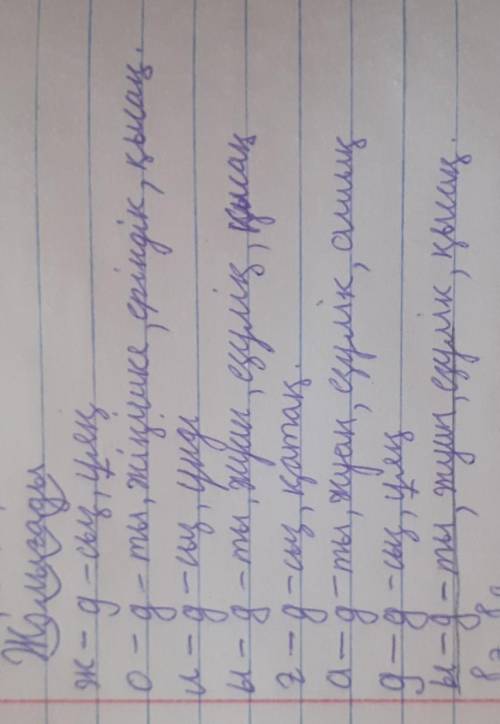 Жолығады
ж – д – сыз, ұяң
о – д – ты, жіңішке, еріндік, қысаң.
л – д – сыз, үнді
ы – д – ты, жуан, езулік, қысаң
г – д – сыз, қатаң.
а – д – ты, жуан, езулік, ашық
д – д – сыз, ұяң
ы – д – ты, жуан, езулік, қысаң.